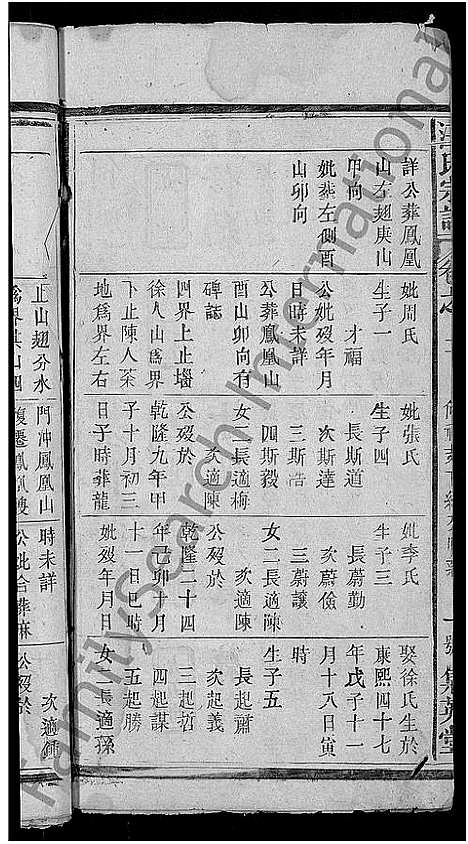 詳公葬鳳凰
山左翅庚山
甲向
妣葬左側酉
山卯向
妣周氏
生子一
才福
公妣歿年月
日時未詳
公葬鳳凰山
酉山卯向有
碑誌
四界上止墦
徐人山爲界
下止陳人茶
地爲界左右
妣張氏
生子四
長斯道
次斯達
三斯浩
四斯毅
女二長適梅
次適陳
公歿於
乾隆九年甲
子十月初三
日子時葬龍
妣李氏
生子三
長蔚勤
次蔚儉
三蔚讓
女二長適陳
次適陳
公歿於
乾隆二十四
年己卯十月
十一日巳時
妣歿年月日
娶徐氏生於
康熙四十七
年戊子十一
月十八日寅
時
生子五
長起肅
次起義
三起哲
四起謀
五起勝
女一長適孫
止山翅分水
爲界其山
門沖鳳凰山
復遷鳳凰
時未詳
公妣合葬麻
次適
公歿於
氏宗譜
集英堂
FamilySearch International